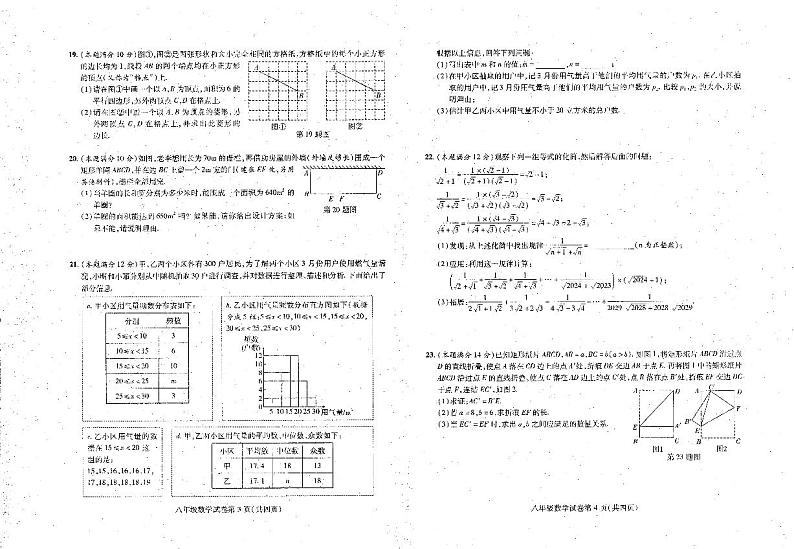 19.(本题满分 10 分)图①,图②是两张形状和大小完全相同的方格纸,方格纸中的每个小正方形
的边长均为 1,线段 AB 的两个端点均在小正方形
的顶点(又称为“格点”)上.
(1)请在图①中画一个以 A,B 为顶点,面积为 6 的
平行四边形,另外两顶点 C,D 在格点上.
(2)请在图②中画一个以 A,B 为顶点的菱形,另
外两顶点 C,D 在格点上,并求出此菱形的
边长.
A
B
A
B
图①
图②
第 19 题图
20.(本题满分 10 分)如图,老李想用长为 70m 的栅栏,再借房房屋的外墙(外墙足够长)围成一个
矩形羊圈 ABCD,并在边 BC 上留一个 2m 宽的门(建在 EF 处,另用
其他材料),栅栏全部用完.
(1)当羊圈的长和宽分别为多少米时,能围成一个面积为 640m² 的
羊圈?
(2)羊圈的面积能达到 650m² 吗?如果能,请你给出设计方案;如
果不能,请说明理由.
A
D
B
E F
C
第 20 题图
21.(本题满分 12 分)甲,乙两个小区各有 300 户居民,为了解两个小区 3 月份用户使用燃气量情
况,小明和小丽分别从中随机抽取 30 户进行调查,并对数据进行整理、描述和分析.下面给出了
部分信息.
a. 甲小区用气量频数分布表如下:
分组 频数
5≤x<10 3
10≤x<15 6
15≤x<20 10
20≤x<25 m
25≤x<30 3
b. 乙小区用气量频数分布直方图如下(数据
分成 5 组:5≤x<10,10≤x<15,15≤x<20,
20≤x<25,25≤x<30)
频数
(户数)
12
10
8
6
4
2
5 10 15 20 25 30 用气量/m³
c. 乙小区用气量的数
据在 15≤x<20 这一
组的是:
15,15,16,16,16,17,
17,18,18,18,18,19
d. 甲,乙两小区用气量的平均数,中位数,众数如下:
小区 平均数 中位数 众数
甲 17.4 18 13
乙 17.1 n 18
八年级数学试卷第 3 页(共四页)
根据以上信息,回答下列问题:
(1)写出表中 m 和 n 的值:m= ,n= ;
(2)在甲小区抽取的用户中,记 3 月份用气量高于他们的平均用气量的户数为 p₁.在乙小区抽
取的用户中,记 3 月份用气量高于他们的平均用气量的户数为 p₂.比较 p₁,p₂ 的大小,并说
明理由;
(3)估计甲乙两小区中用气量不小于 20 立方米的总户数.
22.(本题满分 12 分)观察下列一组等式的化简,然后解答后面的问题:
1/(√2+1)=1×(√2−1)/((√2+1)(√2−1))=√2−1;
1/(√3+√2)=1×(√3−√2)/((√3+√2)(√3−√2))=√3−√2;
1/(√4+√3)=1×(√4−√3)/((√4+√3)(√4−√3))=√4−√3=2−√3;
(1)发现:从上述化简中找出规律 1/(√n+1+√n)= (n 为正整数);
(2)应用:利用这一规律计算:
(1/(√2+√1)+1/(√3+√2)+1/(√4+√3)+⋯+1/(√2024+√2023))×(√2024+1);
(3)拓展:1/(2√1+1√2)+1/(3√2+2√3)+1/(4√3+3√4)+⋯+1/(2029√2028+2028√2029).
23.(本题满分 14 分)已知矩形纸片 ABCD,AB=a,BC=b(a>b).如图 1,将矩形纸片 ABCD 沿过点
D 的直线折叠,使点 A 落在 CD 边上的点 A′处,折痕 DE 交边 AB 于点 E.再将图 1 中的矩形纸片
ABCD 沿过点 E 的直线折叠,使点 C 落在 AD 边上的点 C′处,点 B 落在点 B′处,折痕 EF 交边 DC
于点 F,连结 EC′,如图 2.
(1)求证:AC′=B′E.
(2)若 a=8,b=6,求折痕 EF 的长.
(3)当 EC′=EF 时,求出 a,b 之间应满足的数量关系.
A
D
E
A′
B
C
图1
A
C′
D
B′
E
F
B
C
图2
第 23 题图
八年级数学试卷第 4 页(共四页)